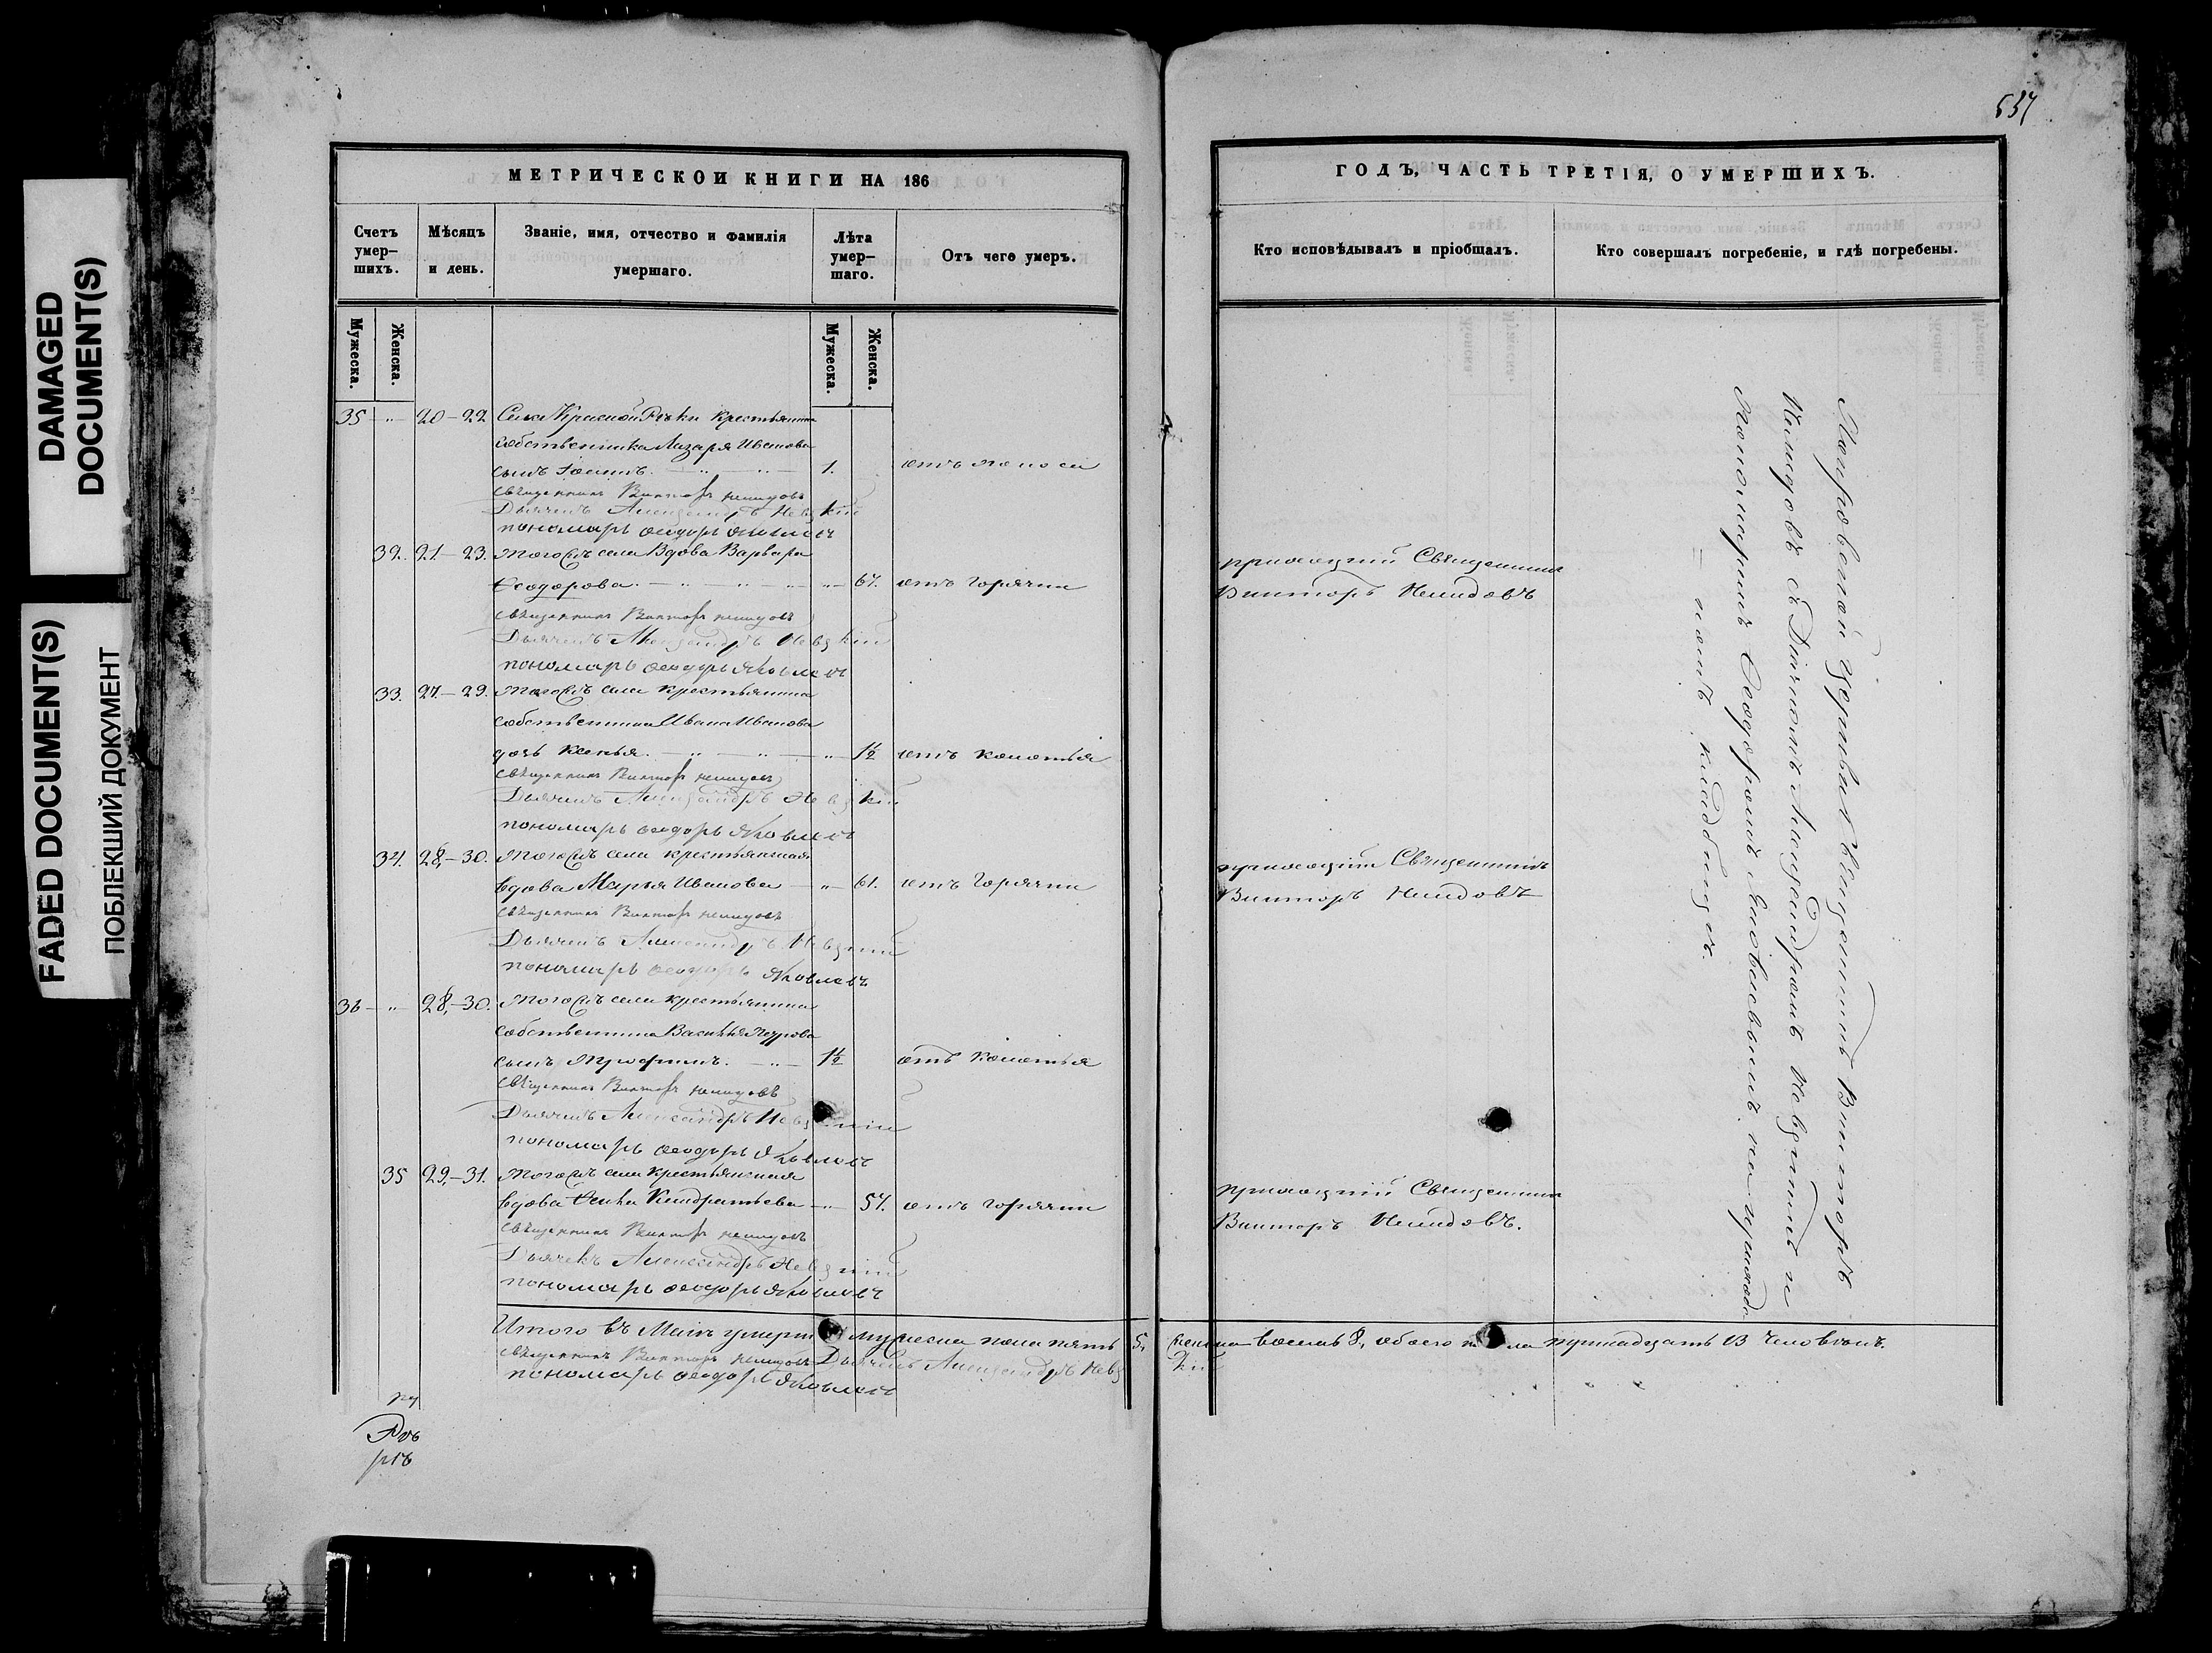 DAMAGED
DOCUMENT(S)
FADED DOCUMENT(S)
ПОБЛЕКШИЙ ДОКУМЕНТ
МЕТРИЧЕСКОЙ КНИГИ НА 186
Счетъ умер-шихъ.
Мѣсяцъ и день.
Званіе, имя, отчество и фамилія умершаго.
Лѣта умер-шаго.
Отъ чего умеръ.
Мужеска.
Женска.
Мужеска.
Женска.
35 " 20-22 Села Красной Рѣчки крестьянина
собственника Лазаря Иванова
сынъ Іоаннъ. 1. отъ поноса
Священникъ Викторъ
Дьячекъ Александръ Невскій
пономарь Феодоръ Яковлевъ
32. 21-23. Того-жъ села Вдова Варвара
Феодорова. 67. отъ горячки
Священникъ Викторъ
Дьячекъ Александръ Невскій
пономарь Феодоръ Яковлевъ
33. 27-29. Того-жъ села крестьянина
собственника Ивана Иванова
дочь Ксенья. 1½ отъ колотья
Священникъ Викторъ
Дьячекъ Александръ Невскій
пономарь Феодоръ Яковлевъ
34. 28,-30. Того-жъ села крестьянская
вдова Марья Иванова 61. отъ горячки
Священникъ Викторъ
Дьячекъ Александръ Невскій
пономарь Феодоръ Яковлевъ
36 " 28,-30. Того-жъ села крестьянина
собственника Василья Петрова
сынъ Трофимъ. 1½ отъ колотья
Священникъ Викторъ
Дьячекъ Александръ Невскій
пономарь Феодоръ Яковлевъ
35 29,-31. Того-жъ села крестьянская
вдова Кондратьева 57. отъ горячки
Священникъ Викторъ
Дьячекъ Александръ Невскій
пономарь Феодоръ Яковлевъ
Итого въ Маѣ умерло мужеска пола пять 5, женска восемь 8, обоего пола тринадцать 13 человѣкъ.
Священникъ Викторъ Дьячекъ Александръ Невскій
пономарь Феодоръ Яковлевъ
657
ГОДЪ, ЧАСТЬ ТРЕТІЯ, О УМЕРШИХЪ.
Кто исповѣдывалъ и пріобщалъ.
Кто совершалъ погребеніе, и гдѣ погребены.
приходскій Священникъ
Викторъ
приходскій Священникъ
Викторъ
приходскій Священникъ
Викторъ
Покровской церкви Священникъ Викторъ
съ Дьячкомъ Александромъ Невскимъ и
Пономаремъ Феодоромъ Яковлевымъ на приход-
скомъ кладбищѣ.